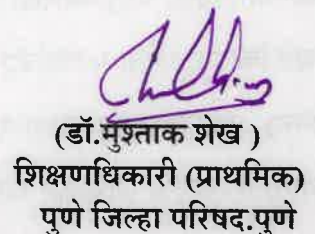 (डॉ.मुश्ताक शेख )
शिक्षणाधिकारी (प्राथमिक)
पुणे जिल्हा परिषद.पुणे